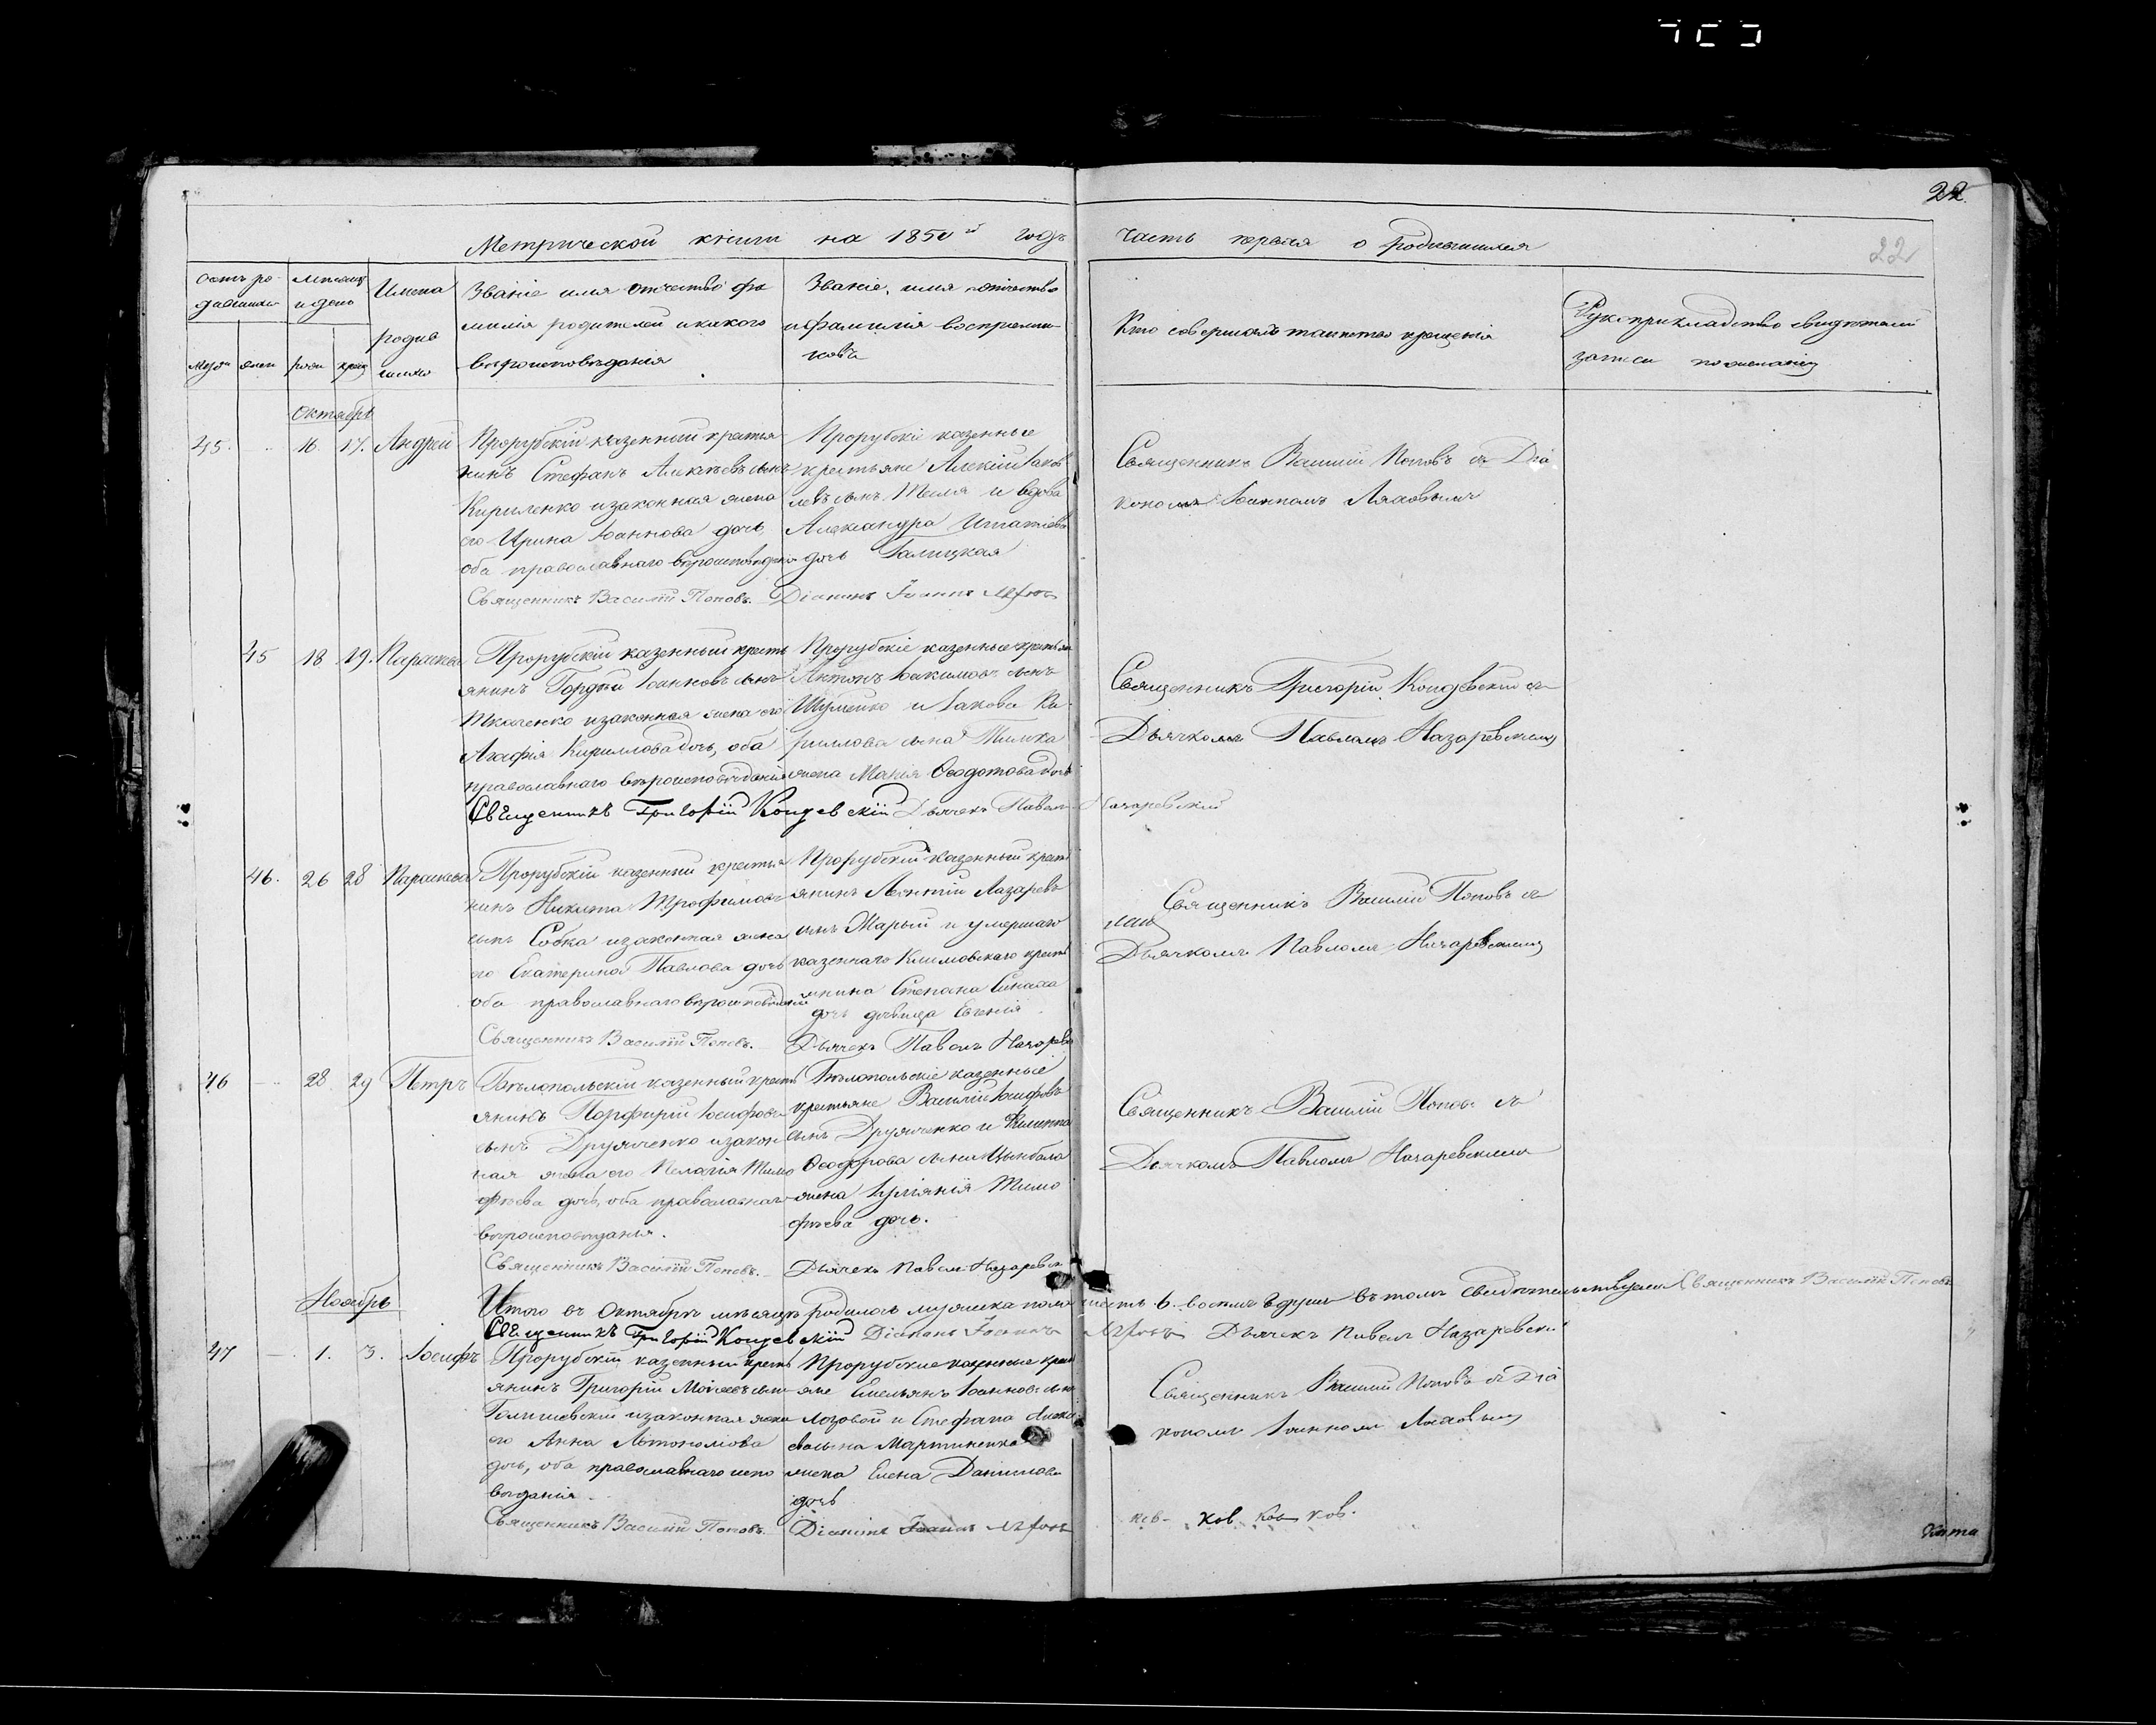 22.
22
Метрической книги на 1850й годъ часть первая о родившихся
Счетъ родившихся
Мѣсяцъ и день
Имена родив
шихся
Званіе имя отчество фа
милія родителей и какого
вѣроисповѣданія
Званіе, имя отчество
и фамилія воспріемни-
ковъ
Кто совершалъ таинство крещенія
Рукоприкладство свидѣтелей
записи по желанію
муж жен рожд крещ
Октябрь
45. 16. 17. Андрей
Прорубскій казенный крестья
нинъ Стефанъ Алексѣевъ сынъ
Кириленко и законная жена
его Ирина Іоаннова дочь,
оба православнаго вѣроисповѣданія
Прорубскіе казенные
крестьяне Алексій Іаков
левъ сынъ и вдова
Александра Игнатіева
дочь Галицкая
Священникъ Василій Поповъ съ Діа
кономъ Іоанномъ
Священникъ Василій Поповъ. Діаконъ Іоаннъ
45 18 19. Параскева
Прорубскій казенный кресть
янинъ Гордѣй Іоанновъ сынъ
Ткаченко и законная жена его
Агафія Кириллова дочь, оба
православнаго вѣроисповѣданія
Прорубскіе казенные крестьяне
Антонъ Іакимовъ сынъ
Шулейко и Іакова Ки
риллова сына
жена Марія Ѳеодотова дочь
Священникъ Григорій съ
Дьячкомъ Павломъ Назаревскимъ
Священникъ Григорій Дьячекъ Павелъ Назаревскій
46. 26 28 Параскева
Прорубскій казенный крестья
нинъ Никита Трофимовъ
сынъ Собка и законная жена
его Екатерина Павлова дочь
оба православнаго вѣроисповѣданія
Прорубскій казенный кресть
янинъ Леонтій Лазаревъ
сынъ Марый и умершаго
казеннаго Климовскаго кресть
янина Степана
дочь дѣвица Евгенія
Священникъ Василій Поповъ съ
Дьячкомъ Павломъ Назаревскимъ
Священникъ Василій Поповъ. Дьячекъ Павелъ Назаревск
46 28 29 Петръ
Бѣлопольскій казенный кресть
янинъ Порфирій Іосифовъ
сынъ Дружченко и закон
ная жена его Пелагія Тимо
фѣева дочь, оба православнаго
вѣроисповѣданія.
Бѣлопольскіе казенные
крестьяне Василій Іосифовъ
сынъ Дружченко и Филиппа
Ѳеодорова сына Цымбала
жена Іуліянія Тимо
фѣева дочь.
Священникъ Василій Поповъ съ
Дьячкомъ Павломъ Назаревскимъ
Священникъ Василій Поповъ. Дьячекъ Павелъ Назаревск
Итого въ Октябрѣ мѣсяцѣ родилось мужеска пола шесть 6. въ томъ свидѣтельствуемъ Священникъ Василій Поповъ
Священникъ Григорій Діаконъ Іоаннъ Дьячекъ Павелъ Назаревскій
Ноябрь
47 1. 3. Іосифъ
Прорубскій казенный кресть
янинъ Григорій Моисеевъ сынъ
и законная жена
его Анна Автономова
дочь, оба православнаго испо
вѣданія.
Прорубские казенные кресть
яне Емельянъ Іоанновъ сынъ
Лозовой и Стефана Алексѣ
ева сына Мартиненка
жена Елена Данилова
дочь
Священникъ Василій Поповъ съ Діа
кономъ Іоанномъ
Священникъ Василій Поповъ. Діаконъ Іоаннъ
ков ков ков.